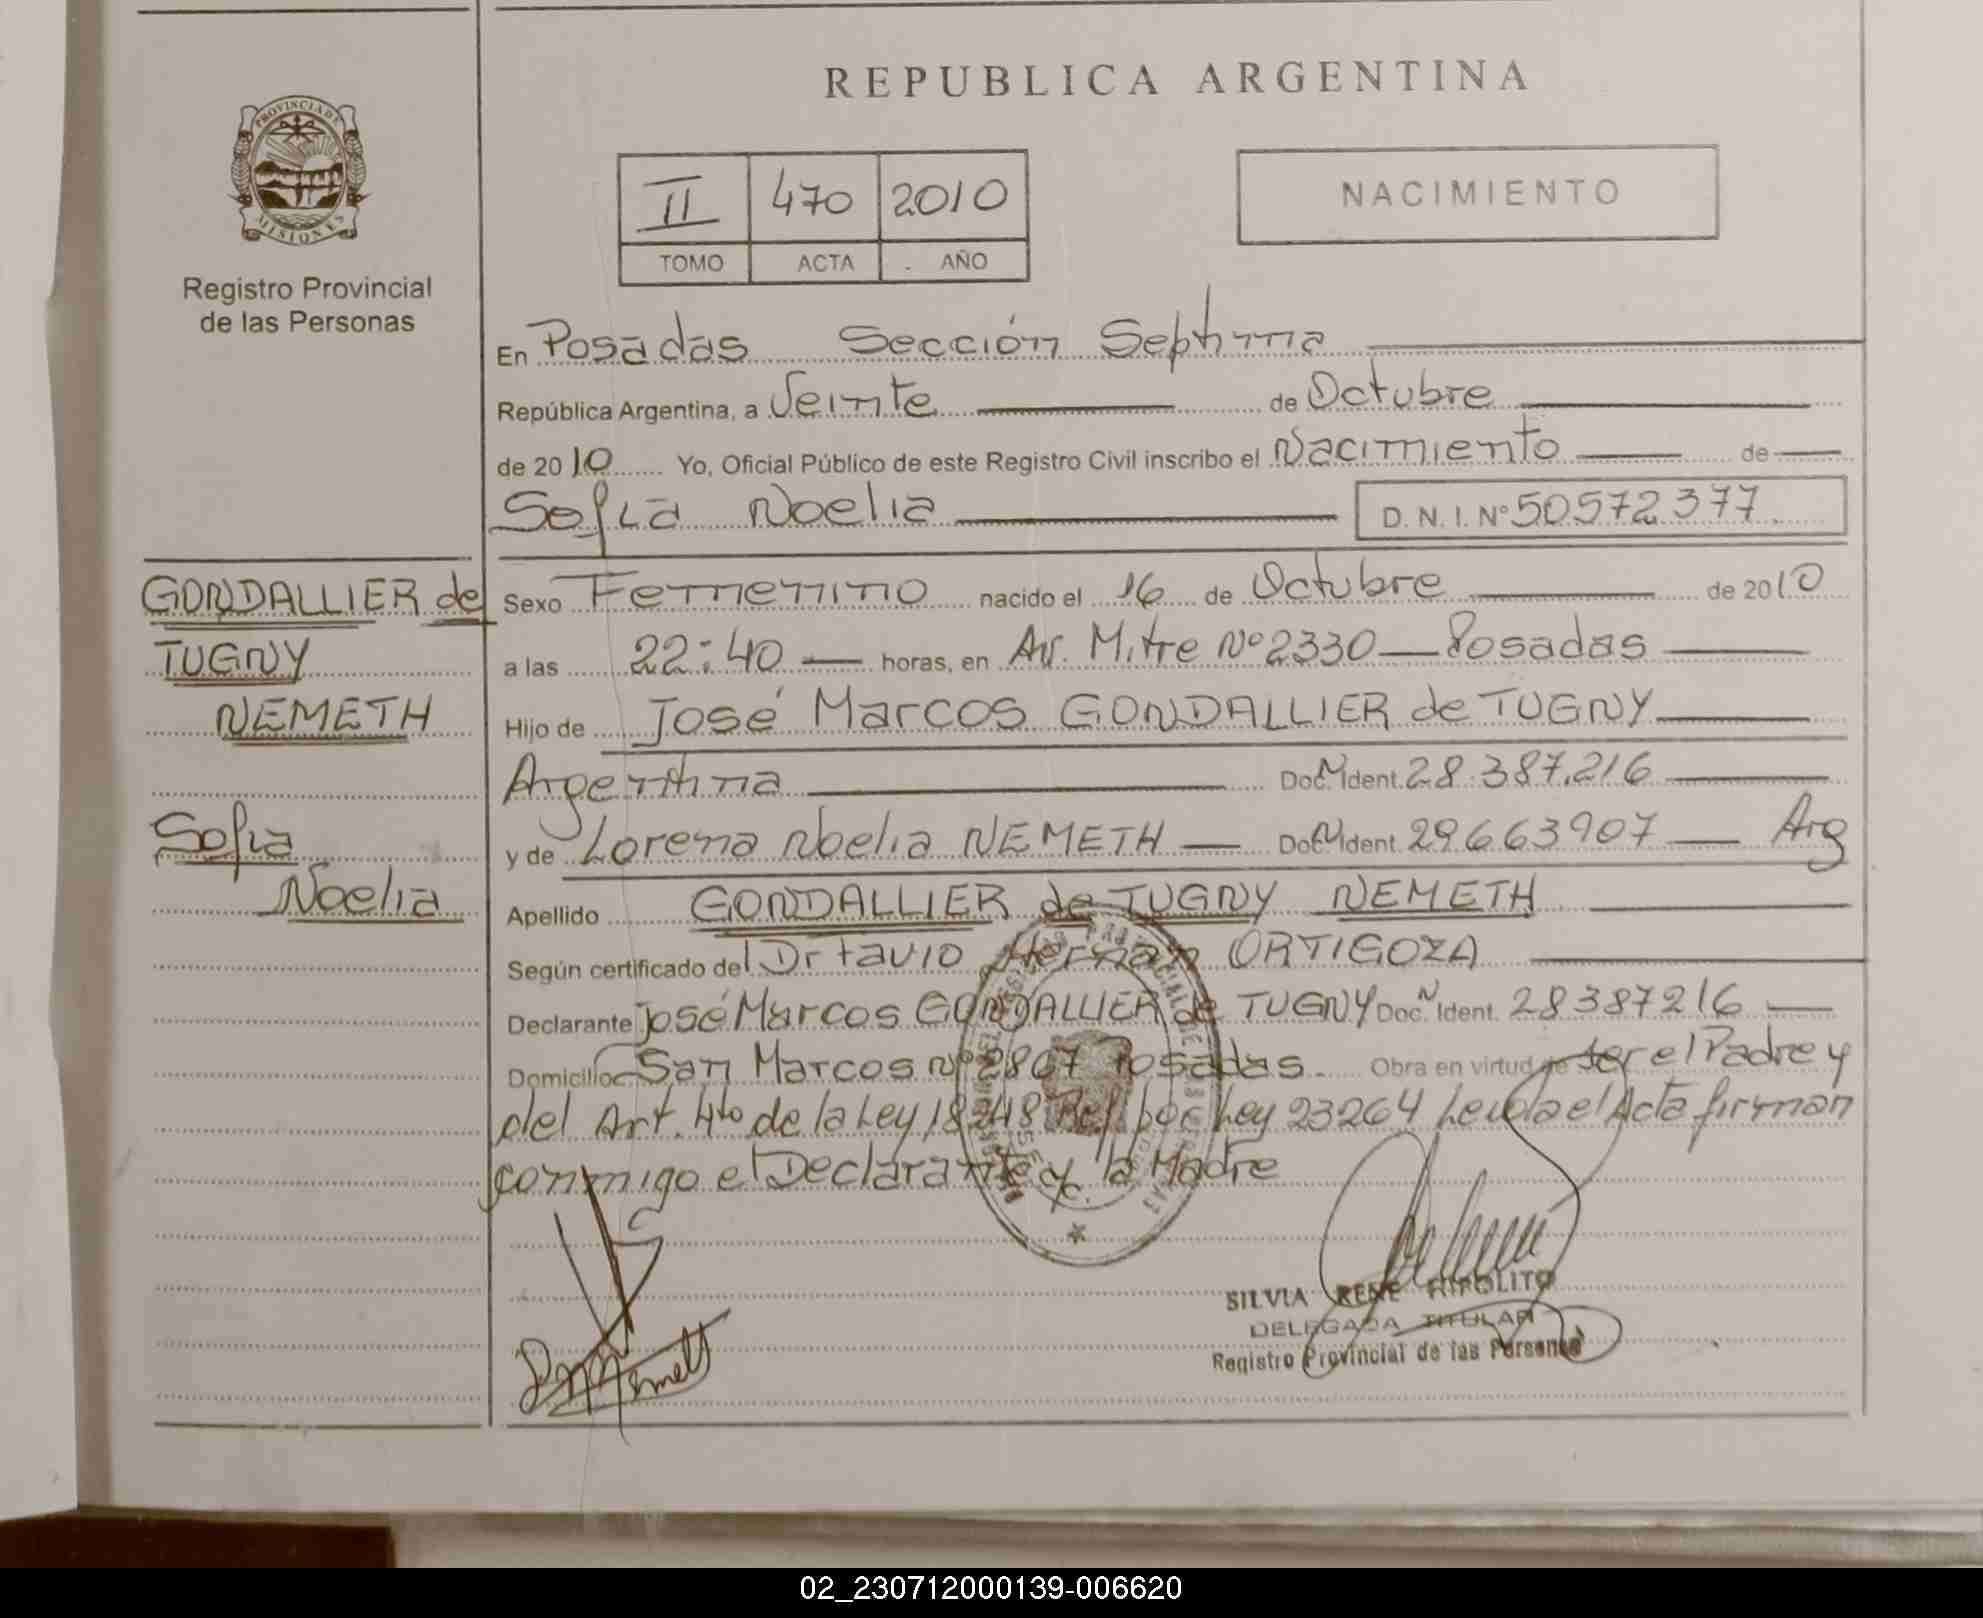 REPUBLICA ARGENTINA
PROVINCIA DE
MISIONES
Registro Provincial
de las Personas
II 470 2010
TOMO ACTA AÑO
NACIMIENTO
En Posadas Sección Septima
República Argentina, a Veinte de Octubre
de 2010 Yo, Oficial Público de este Registro Civil inscribo el Nacimiento de
Sofia Noelia D. N. I. Nº 50572377
GONDALLIER de
TUGNY
NEMETH
Sofia
Noelia
Sexo Femenino nacido el 16 de Octubre de 2010
a las 22:40 horas, en Av. Mitre Nº 2330 Posadas
Hijo de José Marcos GONDALLIER de TUGNY
Argentina Doc. N Ident. 28.387.216
y de Lorena Noelia NEMETH Doc. N Ident. 29663907 Arg
Apellido GONDALLIER de TUGNY NEMETH
Según certificado del Dr Hernán ORTIGOZA
Declarante José Marcos GONDALLIER de TUGNY Doc. N Ident. 28387216
Domicilio San Marcos nº 2867 Posadas. Obra en virtud de ser el Padre y
del Art. 4to de la Ley 18248 Ref. por Ley 23264 Leida el Acta firman
conmigo el Declarante y la Madre
SILVIA RENE HIPOLITO
DELEGADA TITULAR
Registro Provincial de las Personas
02_230712000139-006620